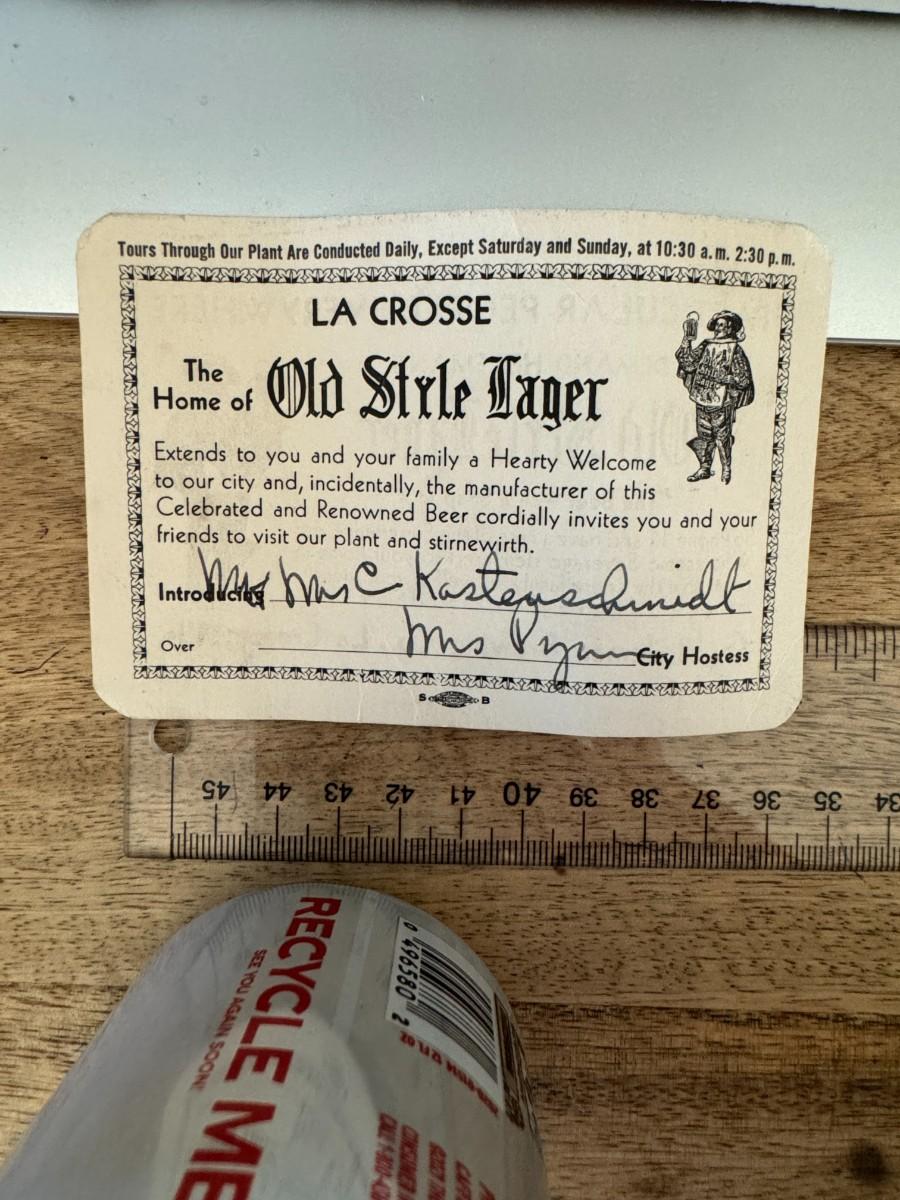 Tours Through Our Plant Are Conducted Daily, Except Saturday and Sunday, at 10:30 a.m. 2:30 p.m.
LA CROSSE
The
Home of Old Style Lager
Extends to you and your family a Hearty Welcome
to our city and, incidentally, the manufacturer of this
Celebrated and Renowned Beer cordially invites you and your
friends to visit our plant and stirnewirth.
Introducing Mr Mrs C Kastenschmidt
Over Mrs City Hostess
S B
45 44 43 42 41 40 39 38 37 36 35 34
RECYCLE ME
SEE YOU AGAIN SOON!
0 496580 2
12 FL OZ